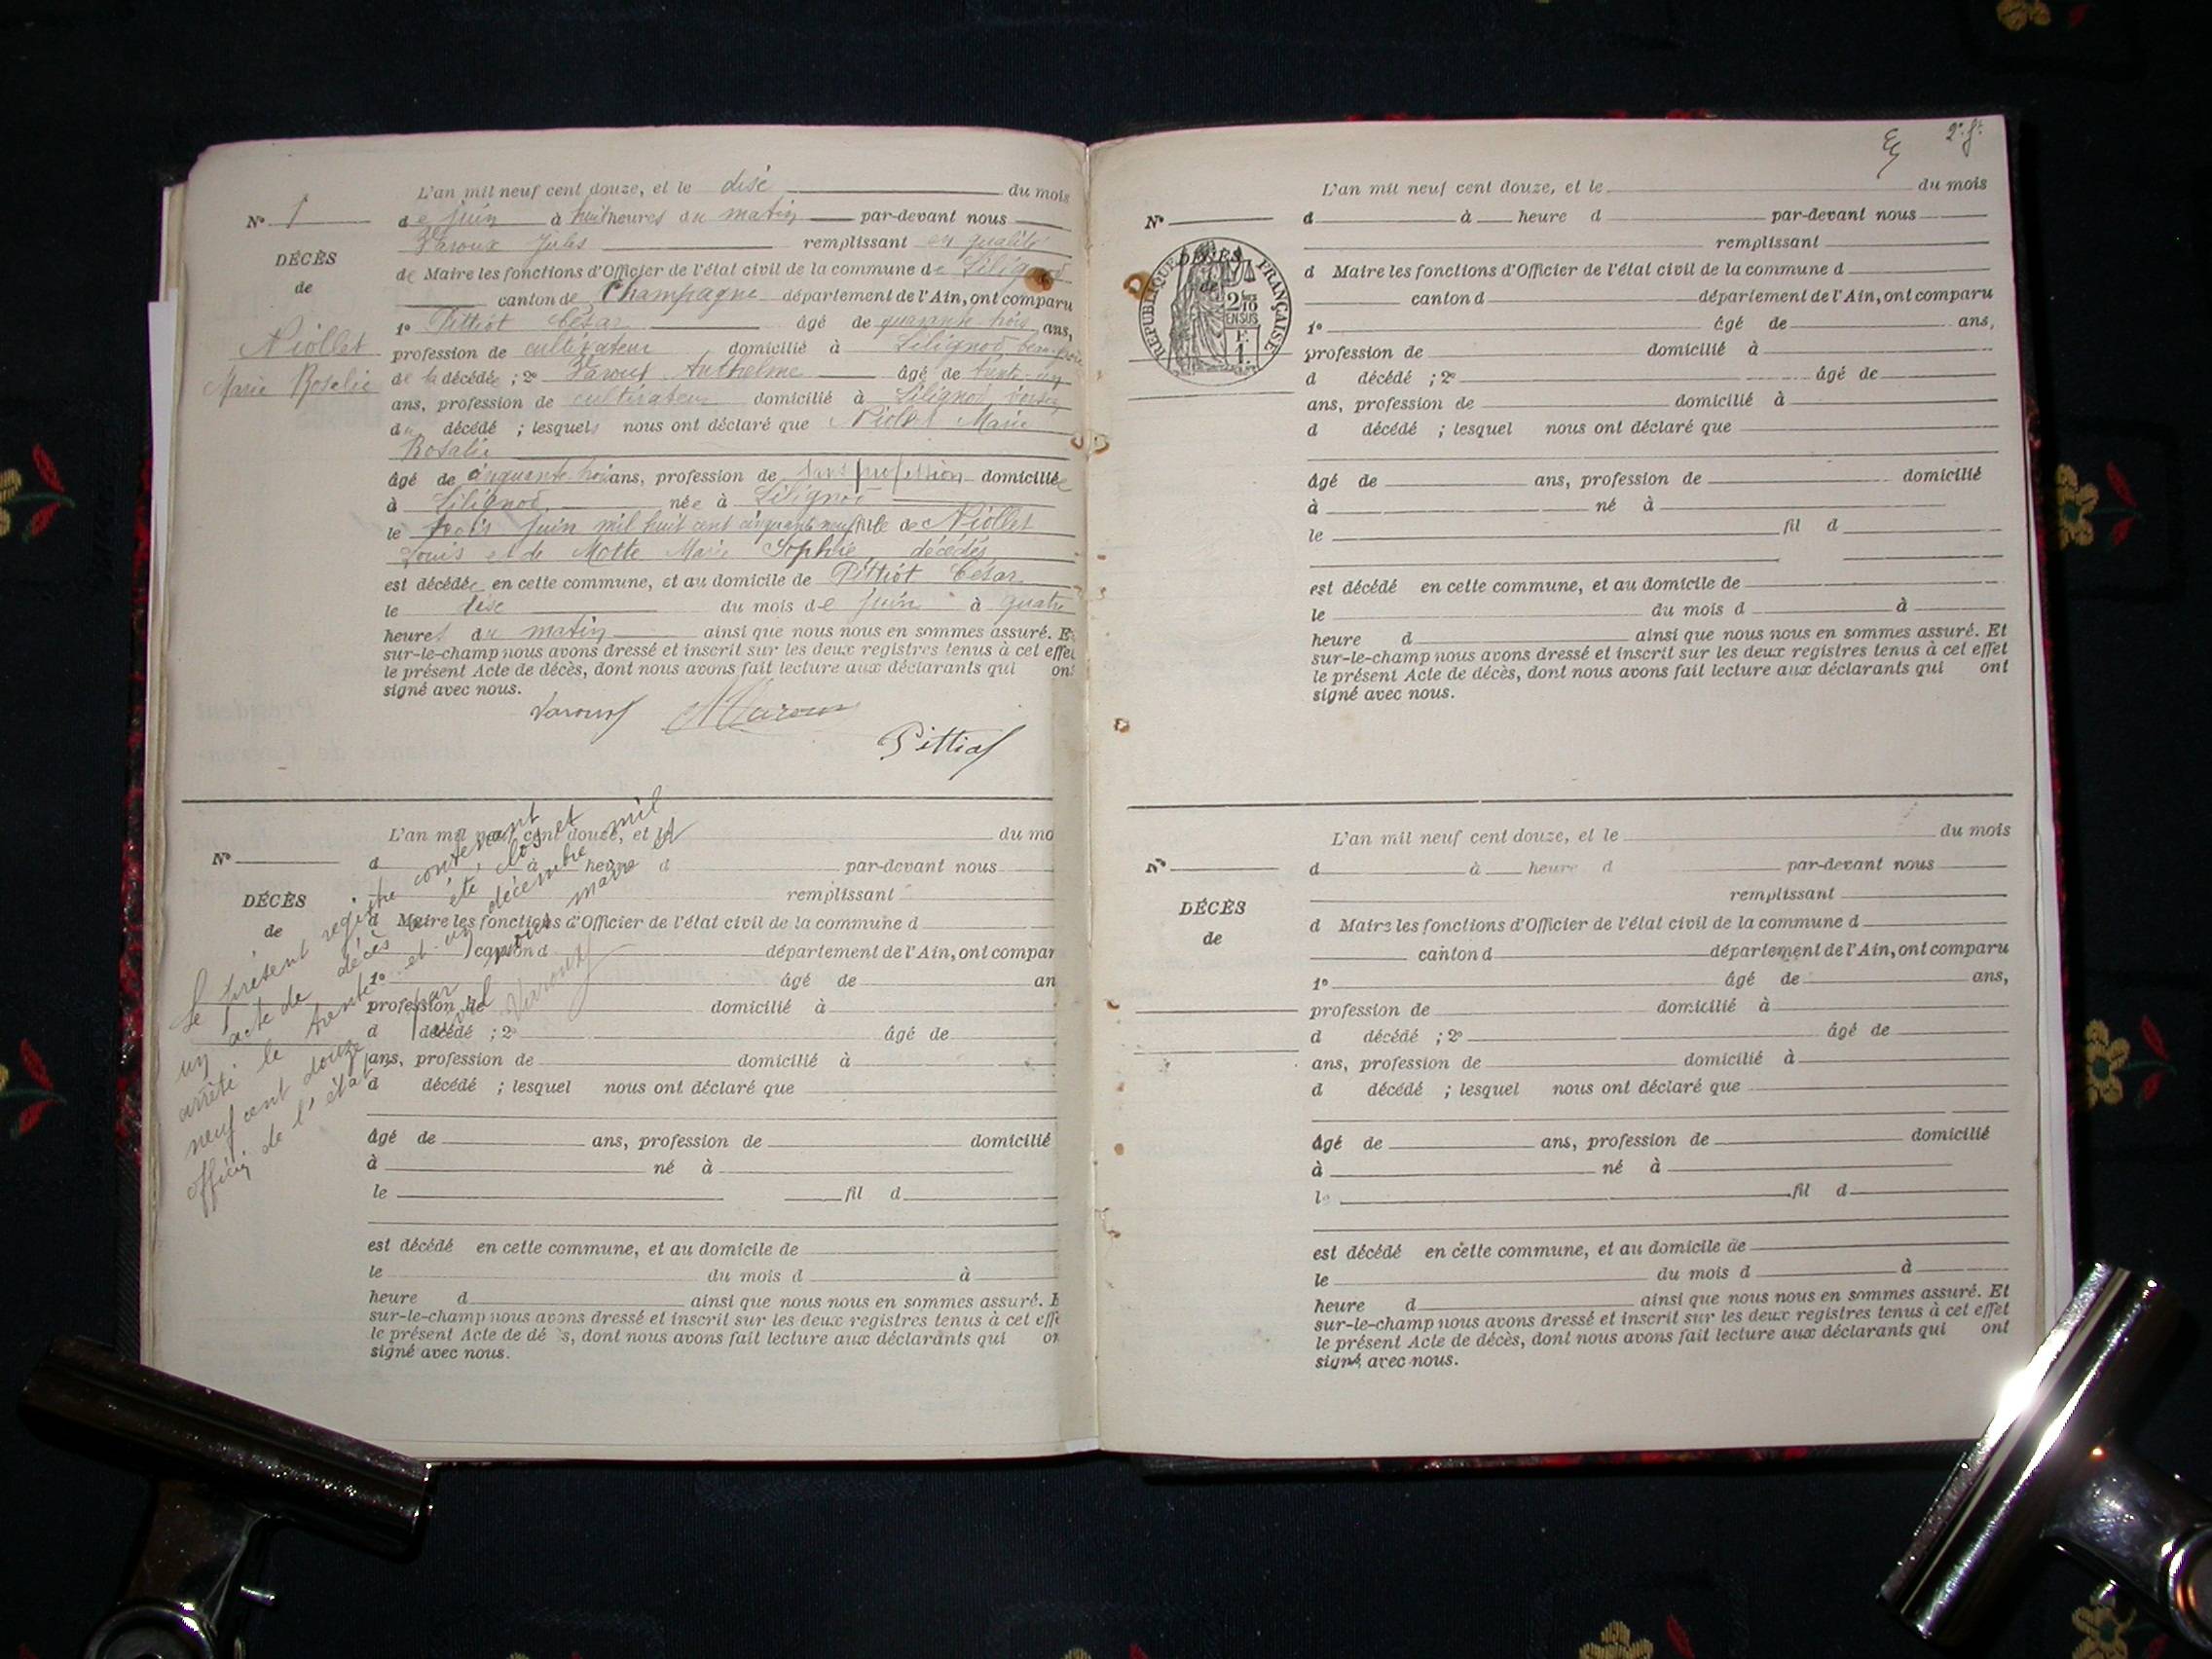 L'an mil neuf cent douze, et le dise du mois
N° 1
de juin à huit heures du matin par-devant nous
Varoux Jules remplissant en qualité
DÉCÈS
de Maire les fonctions d'Officier de l'état civil de la commune de Lilignod
de
canton de Champagne département de l'Ain, ont comparu
1° Pittiot César âgé de quarante trois ans,
Niollet
profession de cultivateur domicilié à Lilignod beau-frère
Marie Rosalie
de la décédée ; 2° Varoux Anthelme âgé de trente-un
ans, profession de cultivateur domicilié à Lilignod, voisin
du décédé ; lesquels nous ont déclaré que Niollet Marie
Rosalie
âgé de cinquante trois ans, profession de sans profession domiciliée
à Lilignod, née à Lilignod
le trois juin mil huit cent cinquante neuf fille de Niollet
Louis et de Motte Marie Sophie, décédés
est décédée en cette commune, et au domicile de Pittiot César
le dise du mois de juin à quatre
heures du matin ainsi que nous nous en sommes assuré. E
sur-le-champ nous avons dressé et inscrit sur les deux registres tenus à cet effet
le présent Acte de décès, dont nous avons fait lecture aux déclarants qui ont
signé avec nous.
Varoux
Pittiot
L'an mil neuf cent douze, et le du mo
N°
d à heure d par-devant nous
remplissant
DÉCÈS
d Maire les fonctions d'Officier de l'état civil de la commune d
de
canton d département de l'Ain, ont compar
1° âgé de an
profession de domicilié à
d décédé ; 2° âgé de
ans, profession de domicilié à
d décédé ; lesquel nous ont déclaré que
âgé de ans, profession de domicilié
à né à
le fil d
est décédé en cette commune, et au domicile de
le du mois d à
heure d ainsi que nous nous en sommes assuré. E
sur-le-champ nous avons dressé et inscrit sur les deux registres tenus à cet effe
le présent Acte de dé s, dont nous avons fait lecture aux déclarants qui on
signé avec nous.
Le présent registre contenant
un acte de décès a été clos et
arrêté le trente et un décembre mil
neuf cent douze par nous maire et
officier de l'état civil
Varoux
2e ft
L'an mil neuf cent douze, et le du mois
N°
d à heure d par-devant nous
remplissant
DÉCÈS
de
RÉPUBLIQUE FRANÇAISE
2/10
EN SUS
F
1.
d Maire les fonctions d'Officier de l'état civil de la commune d
canton d département de l'Ain, ont comparu
1° âgé de ans,
profession de domicilié à
d décédé ; 2° âgé de
ans, profession de domicilié à
d décédé ; lesquel nous ont déclaré que
âgé de ans, profession de domicilié
à né à
le fil d
est décédé en cette commune, et au domicile de
le du mois d à
heure d ainsi que nous nous en sommes assuré. Et
sur-le-champ nous avons dressé et inscrit sur les deux registres tenus à cet effet
le présent Acte de décès, dont nous avons fait lecture aux déclarants qui ont
signé avec nous.
L'an mil neuf cent douze, et le du mois
N°
d à heure d par-devant nous
remplissant
DÉCÈS
d Maire les fonctions d'Officier de l'état civil de la commune d
de
canton d département de l'Ain, ont comparu
1° âgé de ans,
profession de domicilié à
d décédé ; 2° âgé de
ans, profession de domicilié à
d décédé ; lesquel nous ont déclaré que
âgé de ans, profession de domicilié
à né à
le fil d
est décédé en cette commune, et au domicile de
le du mois d à
heure d ainsi que nous nous en sommes assuré. Et
sur-le-champ nous avons dressé et inscrit sur les deux registres tenus à cet effet
le présent Acte de décès, dont nous avons fait lecture aux déclarants qui ont
signé avec nous.